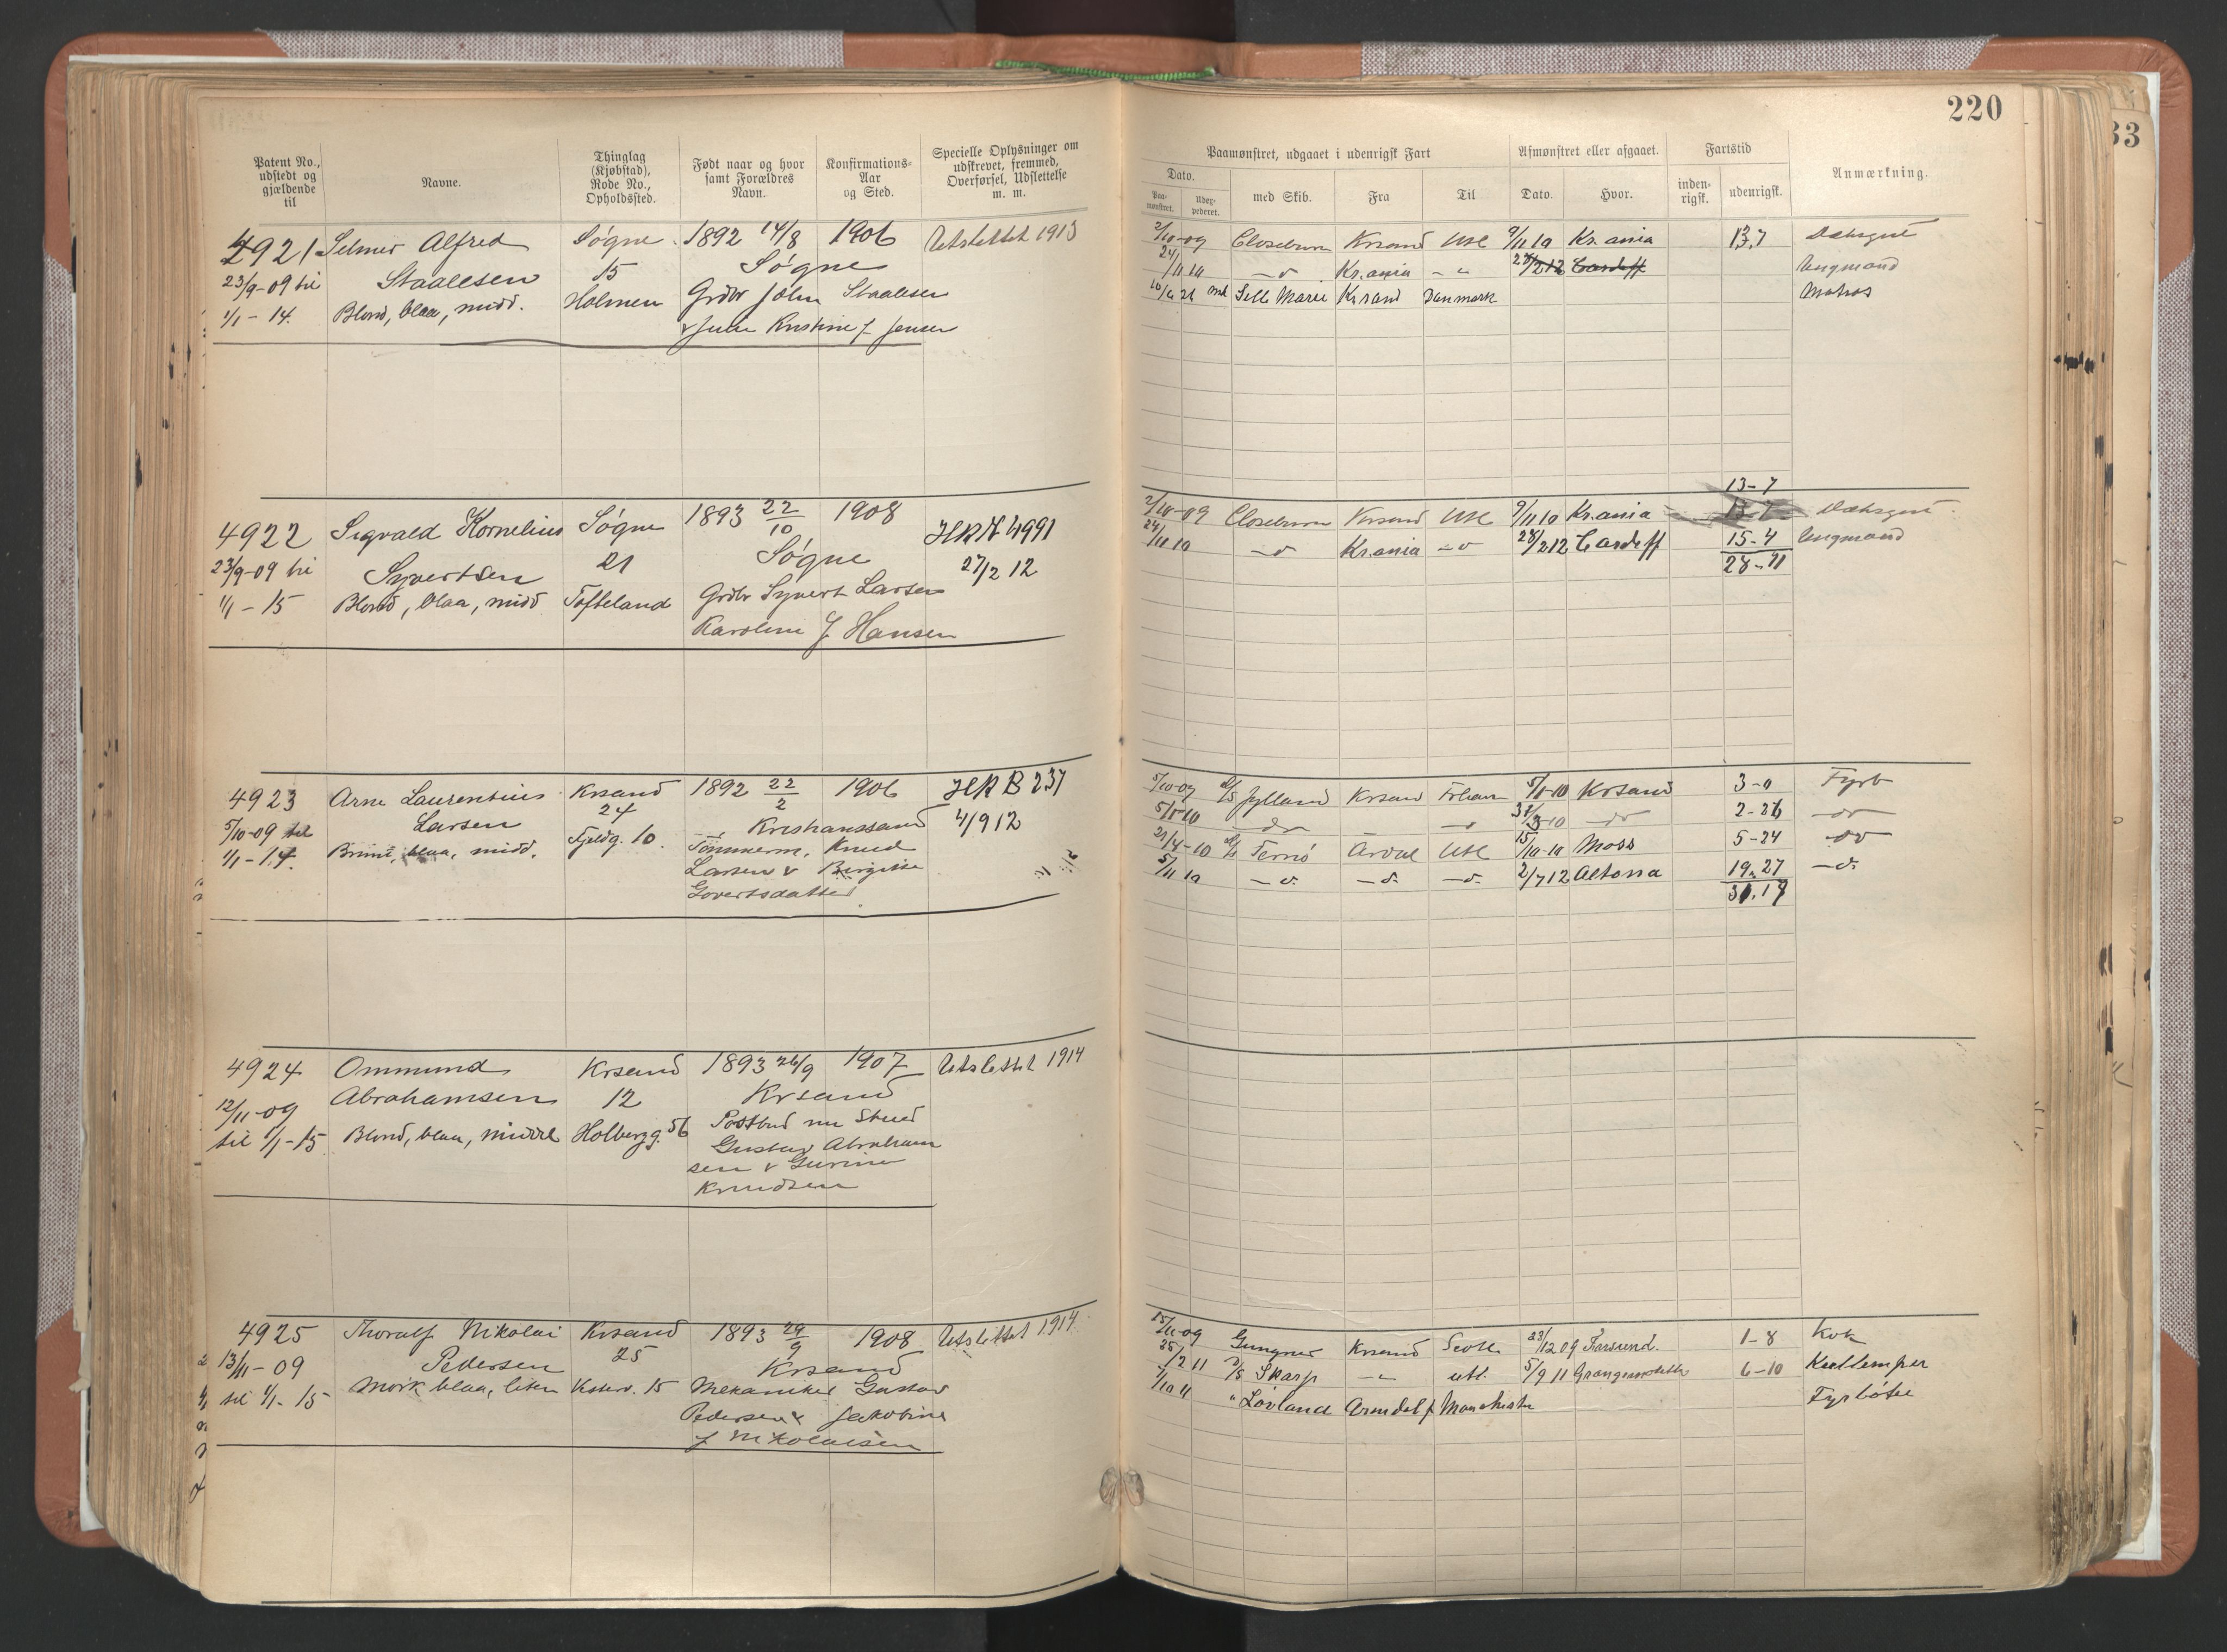 220
33
Patent No., udstedt og gjældende til
Navne.
Thinglag (Kjøbstad), Rode No., Opholdssted.
Født naar og hvor samt Forældres Navn.
Konfirmations-Aar og Sted.
Specielle Oplysninger om udskrevet, fremmed, Overførsel, Udslettelse m. m.
Paamønstret, udgaaet i udenrigsk Fart
Afmønstret eller afgaaet.
Fartstid
Anmærkning.
Dato.
Paamønstret.
med Skib.
Fra
Til
Dato.
Hvor.
inden-rigsk.
udenrigsk.
4921 Selmer Alfred Søgne 1892 14/8 1906 Utslettet 1913
23/9-09 til Staalesen 15 Søgne
1/1-14. Blond, blaa, midd. Holmen Grdbr John Staalesen
v Julie Kristine f Jensen
2/10-09 Closeburn Krsand Utl 9/11 10 Kr.ania 13,7 Dæksgut
24/11 10 Kr.ania 28/2 12 Cardeff Ungmand
Marie Krsand Danmark Matros
4922 Sigvald Kornelius Søgne 1893 22/10 1908 HRN 4991
23/9-09 til Syvertsen 21 Søgne 27/2 12
1/1-15 Blond, blaa, midd Tofteland Grdbr Syvert Larsen
Karoline f Hansen
13-7
2/10-09 Closeburn Krsand Utl 9/11 10 Kr.ania Dæksgut
24/11 10 -o- Kr.ania -o- 28/2 12 Cardeff 15-4 Ungmand
28-11
4923 Arne Laurentius Krsand 1892 22/2 1906 HRB 237
5/10-09 til Larsen 24 Kristianssand 4/9 12
1/1-14. Brunt, blaa, midd. Fjeldg. 10. Tømmerm. Knud
Larsen v Birgitte
Govertsdatter
5/10-09 D/S Jylland Krsand Frhavn 5/1-10 Krsand 3-0 Fyrb
5/1-10 -do- 31/3-10 -do- 2-26 -do-
21/4-10 D/S Ternö Ardal Utl 15/10-10 Moss 5-24 -do-
5/11 10 -o- -o- -o- 2/7 12 Altona 19.27 -o-
31.17
4924 Ommund Krsand 1893 26/9 1907 Utslettet 1914
12/11-09 Abrahamsen 12 Krsand
til 1/1-15 Blond, blaa, middel Holbergg. 56 Postbud nu Stued
Gustav Abraham
sen v Gurine
Knudsen
4925 Thoralf Nikolai Krsand 1893 29/9 1908 Utslettet 1914
13/11-09 Pedersen 25 Krsand
til 1/1-15 Mørk blaa, liten Vesterv. 15 Mekaniker Gustav
Pedersen v Jakobine
f Nikolaisen
15/11-09 Gungner Krsand Scotl 23/12 09 Farsund. 1-8 Kok
25/2 11 D/S Skarp -"- utl. 5/9 11 Grangemoth 6-10 Kullemper
7/10 11 " Lovland Arendal f Manchester Fyrbøter